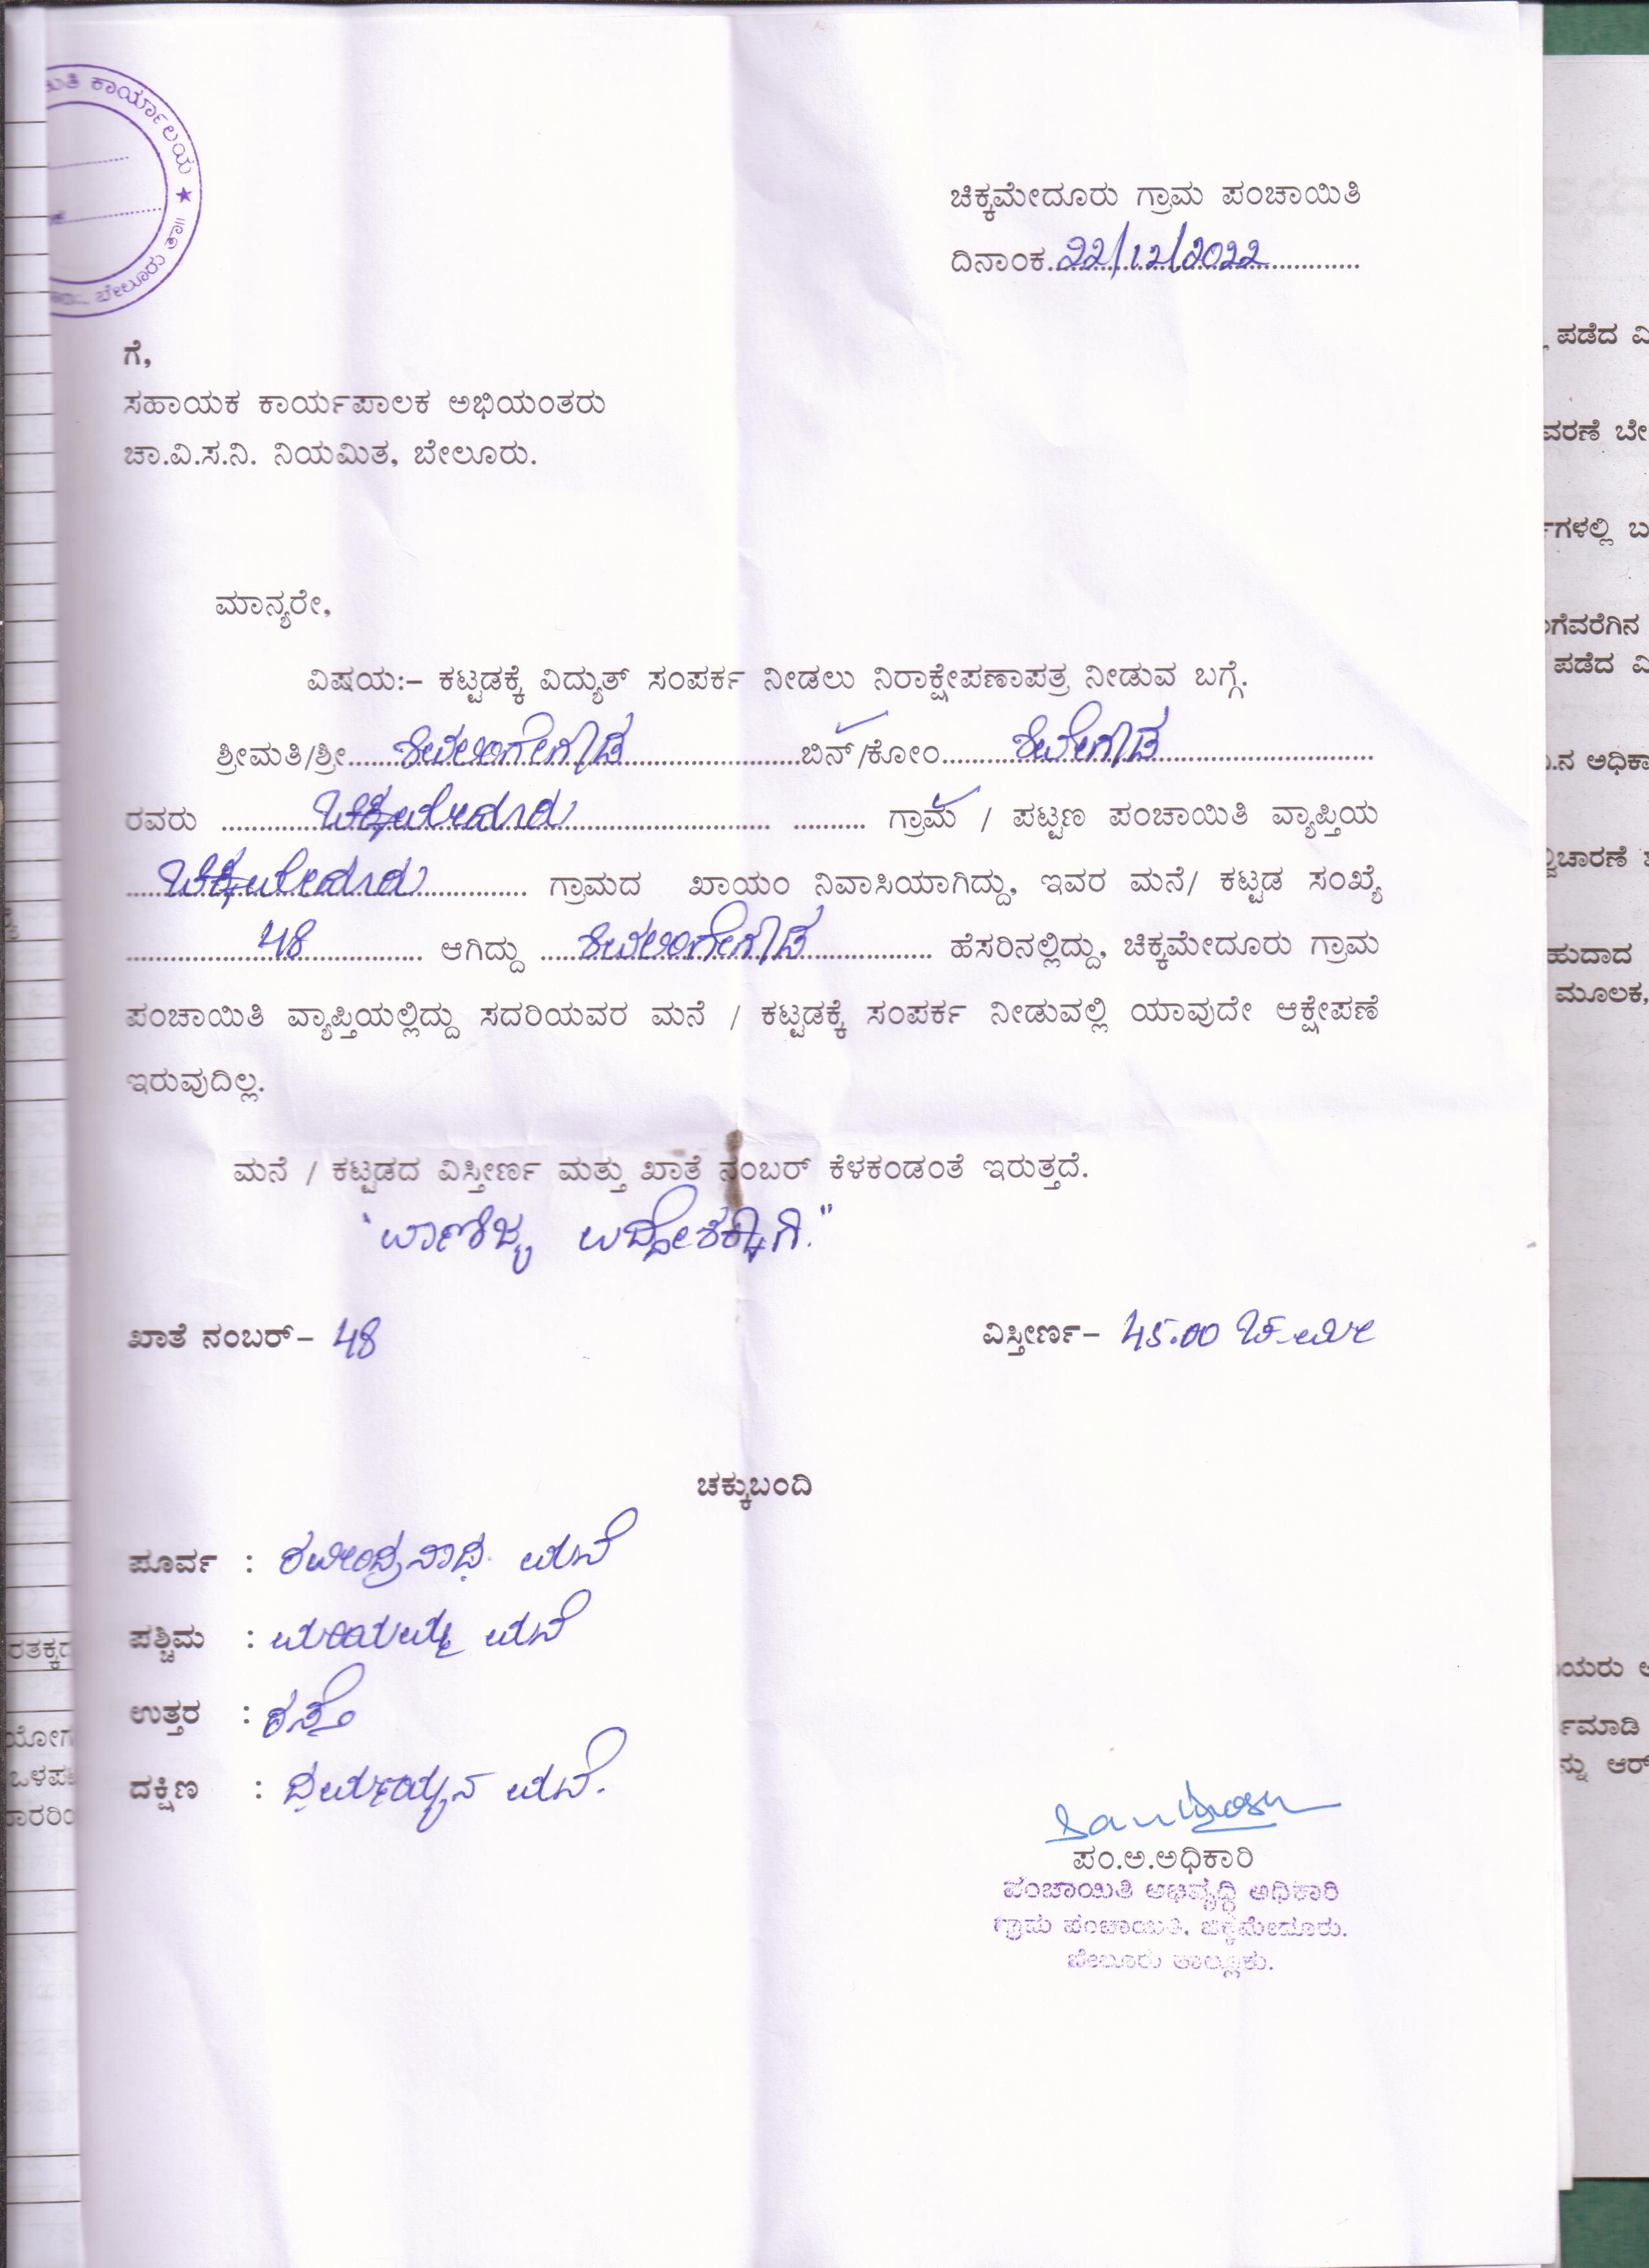 ಕಾರ್ಯಾಲಯ ★
ಬೇಲೂರು ತಾ॥
ಚಿಕ್ಕಮೇದೂರು ಗ್ರಾಮ ಪಂಚಾಯಿತಿ
ದಿನಾಂಕ.22/12/2022
ಗೆ,
ಸಹಾಯಕ ಕಾರ್ಯಪಾಲಕ ಅಭಿಯಂತರು
ಚಾ.ವಿ.ಸ.ನಿ. ನಿಯಮಿತ, ಬೇಲೂರು.
ಮಾನ್ಯರೇ,
ವಿಷಯ:– ಕಟ್ಟಡಕ್ಕೆ ವಿದ್ಯುತ್ ಸಂಪರ್ಕ ನೀಡಲು ನಿರಾಕ್ಷೇಪಣಾಪತ್ರ ನೀಡುವ ಬಗ್ಗೆ.
ಶ್ರೀಮತಿ/ಶ್ರೀ......ಶಿವಲಿಂಗೇಗೌಡ......ಬಿನ್/ಕೋಂ......ಶಿವೇಗೌಡ......
ರವರು ......ಚಿಕ್ಕಮೇದೂರು...... ಗ್ರಾಮ / ಪಟ್ಟಣ ಪಂಚಾಯಿತಿ ವ್ಯಾಪ್ತಿಯ
......ಚಿಕ್ಕಮೇದೂರು...... ಗ್ರಾಮದ ಖಾಯಂ ನಿವಾಸಿಯಾಗಿದ್ದು, ಇವರ ಮನೆ/ ಕಟ್ಟಡ ಸಂಖ್ಯೆ
......48...... ಆಗಿದ್ದು ......ಶಿವಲಿಂಗೇಗೌಡ...... ಹೆಸರಿನಲ್ಲಿದ್ದು, ಚಿಕ್ಕಮೇದೂರು ಗ್ರಾಮ
ಪಂಚಾಯಿತಿ ವ್ಯಾಪ್ತಿಯಲ್ಲಿದ್ದು ಸದರಿಯವರ ಮನೆ / ಕಟ್ಟಡಕ್ಕೆ ಸಂಪರ್ಕ ನೀಡುವಲ್ಲಿ ಯಾವುದೇ ಆಕ್ಷೇಪಣೆ
ಇರುವುದಿಲ್ಲ.
ಮನೆ / ಕಟ್ಟಡದ ವಿಸ್ತೀರ್ಣ ಮತ್ತು ಖಾತೆ ನಂಬರ್ ಕೆಳಕಂಡಂತೆ ಇರುತ್ತದೆ.
"ವಾಣಿಜ್ಯ ಉದ್ದೇಶಕ್ಕಾಗಿ."
ಖಾತೆ ನಂಬರ್– 48
ವಿಸ್ತೀರ್ಣ– 45.00 ಚ.ಮೀ
ಚಕ್ಕುಬಂದಿ
ಪೂರ್ವ : ರವೀಂದ್ರನಾಥ. ಮನೆ
ಪಶ್ಚಿಮ : ಮನೆ
ಉತ್ತರ : ರಸ್ತೆ
ದಕ್ಷಿಣ : ಧರ್ಮಯ್ಯನ ಮನೆ.
ಪಂ.ಅ.ಅಧಿಕಾರಿ
ಪಂಚಾಯಿತಿ ಅಭಿವೃದ್ಧಿ ಅಧಿಕಾರಿ
ಗ್ರಾಮ ಪಂಚಾಯಿತಿ, ಚಿಕ್ಕಮೇದೂರು.
ಬೇಲೂರು ತಾಲ್ಲೂಕು.
ಪಡೆದ ವಿ
ವರಣೆ ಬೇ
ಗಳಲ್ಲಿ ಬ
ಗೆವರೆಗಿನ
ಪಡೆದ ವಿ
.ನ ಅಧಿಕಾ
ಚಾರಣೆ
ಹುದಾದ
ಮೂಲಕ,
ಯರು
ಮಾಡಿ
ನ್ನು ಆರ್
ರತಕ್ಕದ
ಯೋಗ
ಒಳಪ
ಾರರಿಂ